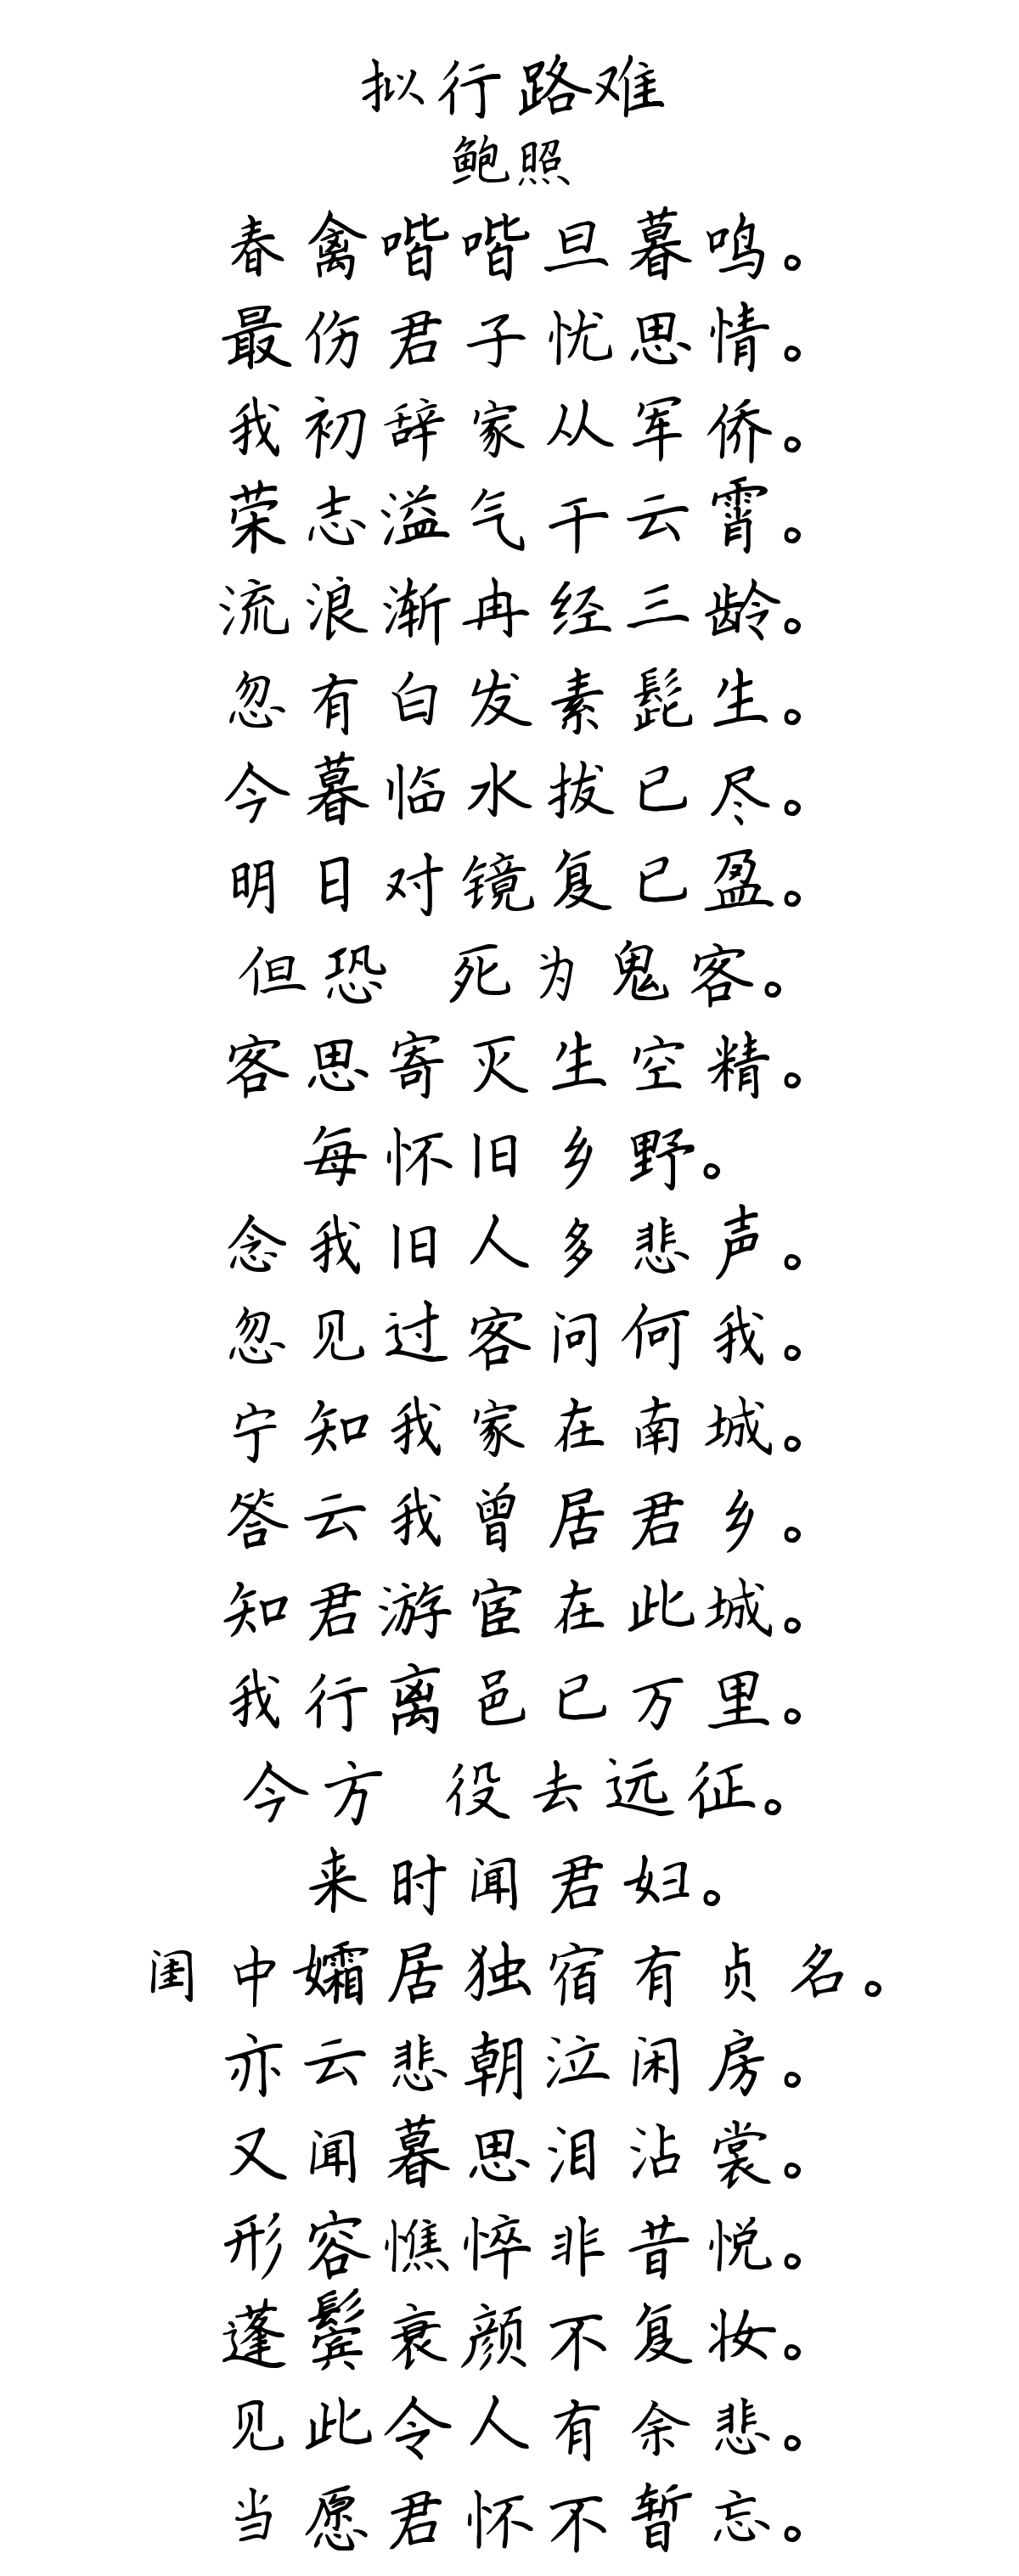 拟行路难
鲍照
春禽喈喈旦暮鸣。
最伤君子忧思情。
我初辞家从军侨。
荣志溢气干云霄。
流浪渐冉经三龄。
忽有白发素髭生。
今暮临水拔已尽。
明日对镜复已盈。
但恐 死为鬼客。
客思寄灭生空精。
每怀旧乡野。
念我旧人多悲声。
忽见过客问何我。
宁知我家在南城。
答云我曾居君乡。
知君游宦在此城。
我行离邑已万里。
今方 役去远征。
来时闻君妇。
闺中孀居独宿有贞名。
亦云悲朝泣闲房。
又闻暮思泪沾裳。
形容憔悴非昔悦。
蓬鬓衰颜不复妆。
见此令人有余悲。
当愿君怀不暂忘。